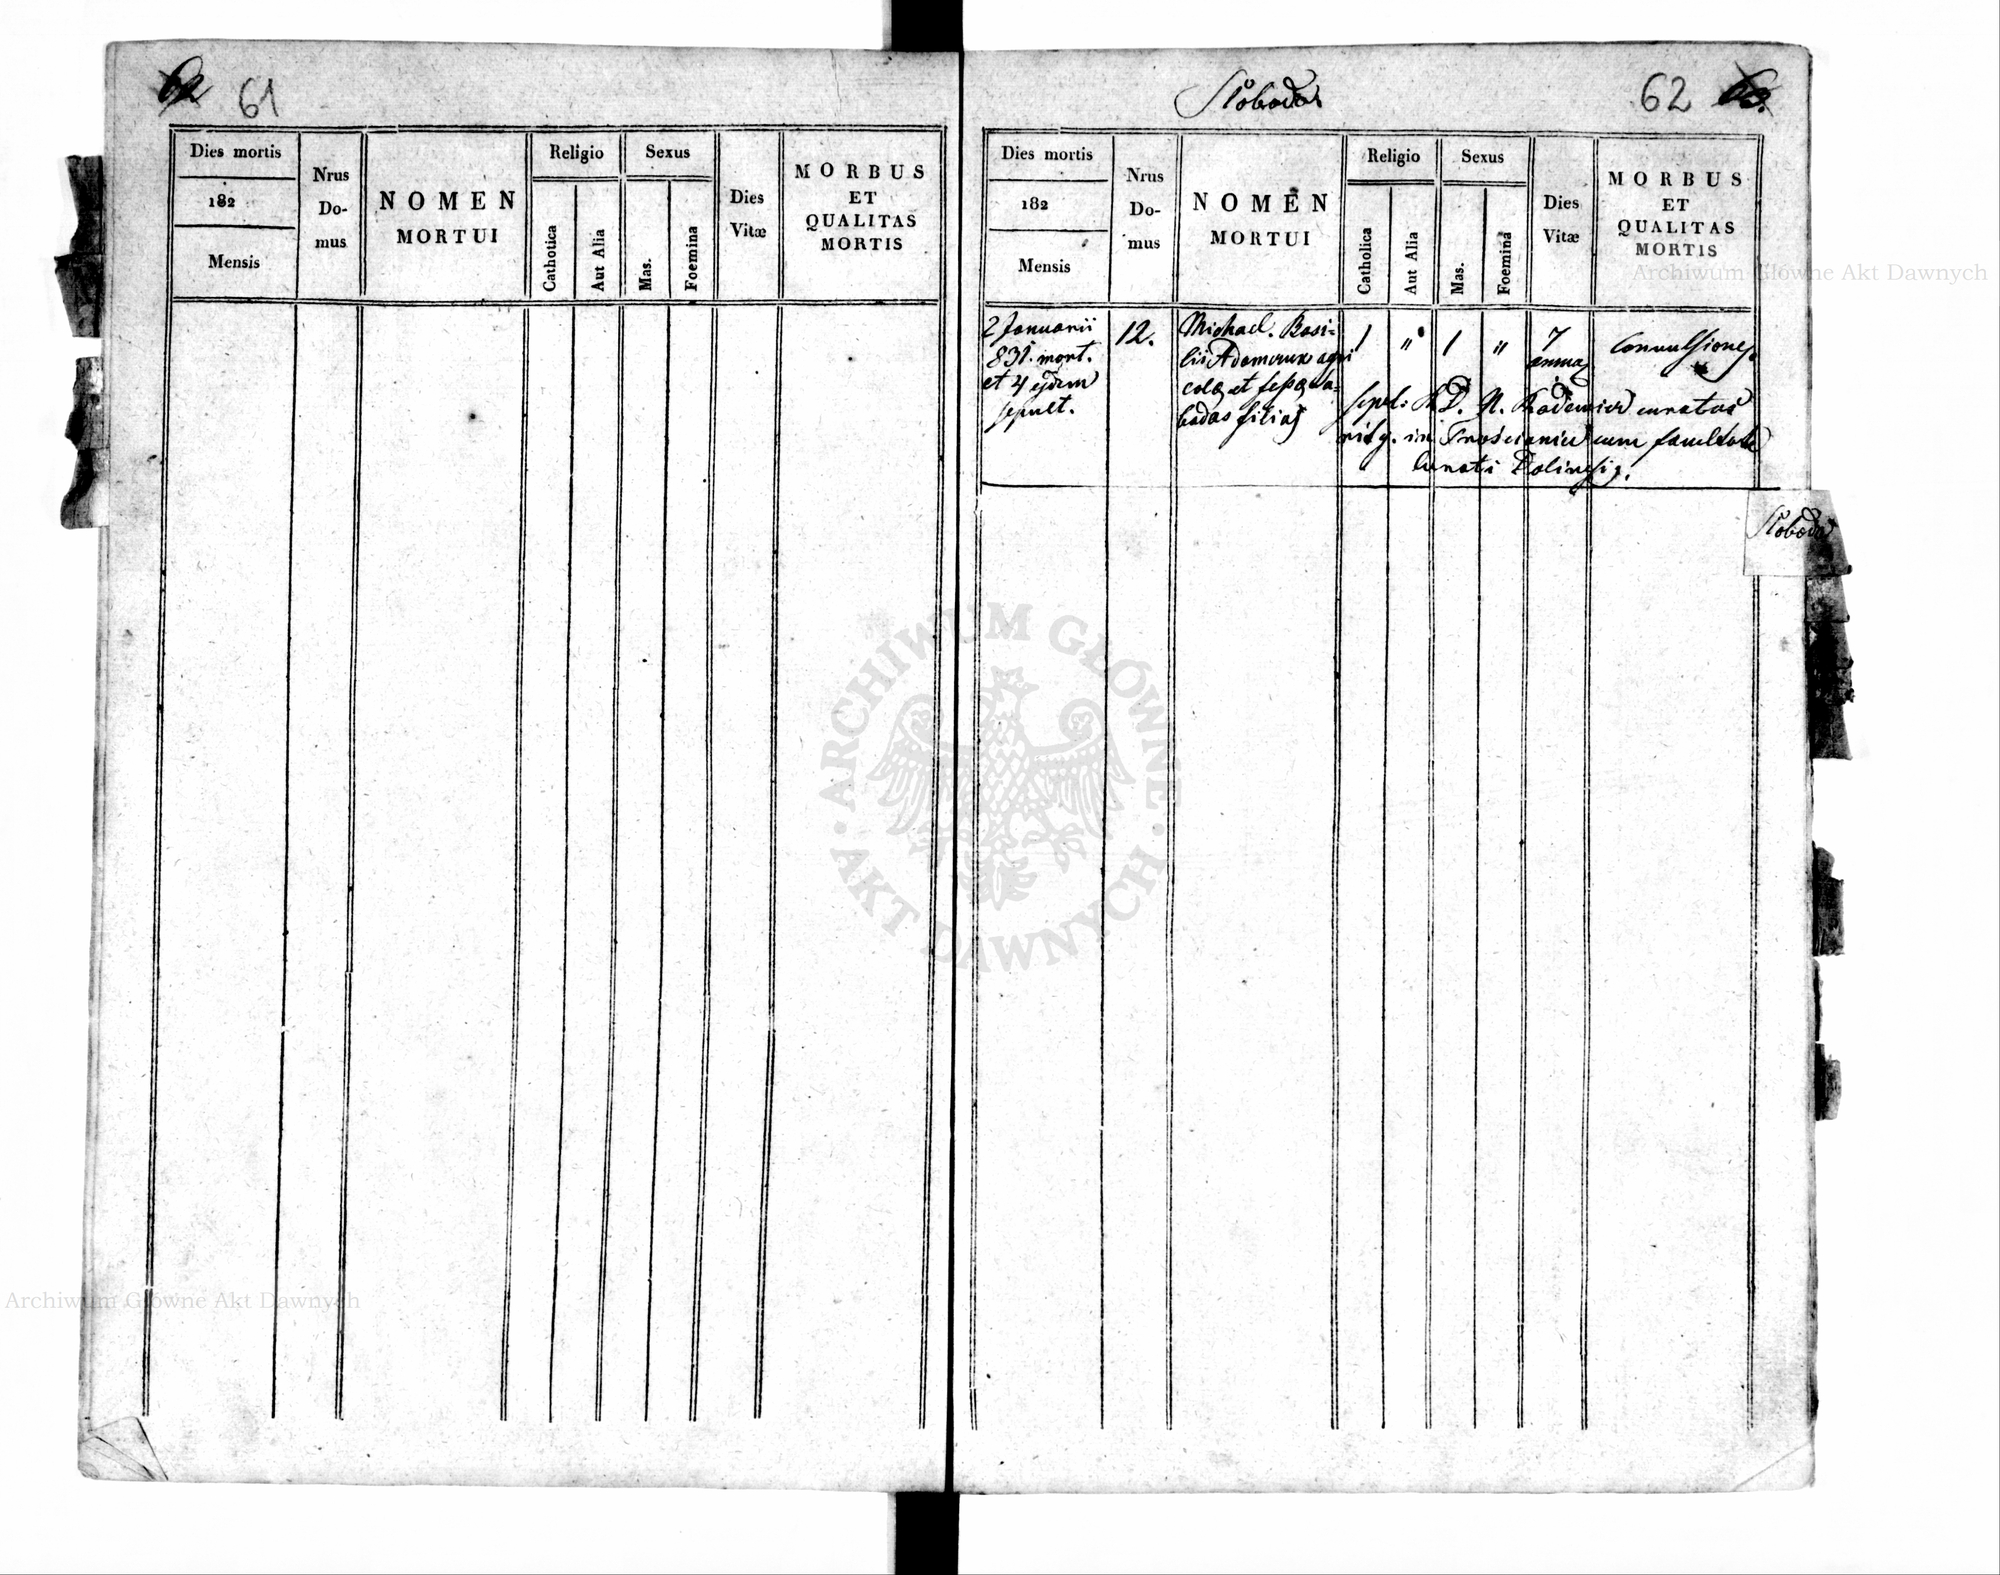 61
Dies mortis
182
Mensis
Nrus
Do-
mus
NOMEN
MORTUI
Religio
Catholica
Aut Alia
Sexus
Mas.
Foemina
Dies
Vitæ
MORBUS
ET
QUALITAS
MORTIS
Słoboda
62
Dies mortis
182
Mensis
Nrus
Do-
mus
NOMEN
MORTUI
Religio
Catholica
Aut Alia
Sexus
Mas.
Foemina
Dies
Vitæ
MORBUS
ET
QUALITAS
MORTIS
2 Januarii
831. mort.
et 4 ejdem
sepult.
12.
Michael. Basi=
lii agri
colæ et
filius
1 " 1 "
7
annus
Convulsiones.
sepel: R. D. N. curatus
r: in Trościaniec cum facultate
Curati Dolinesis.
Słoboda
Archiwum Główne Akt Dawnych
ARCHIWUM GŁÓWNE AKT DAWNYCH
Archiwum Główne Akt Dawnych